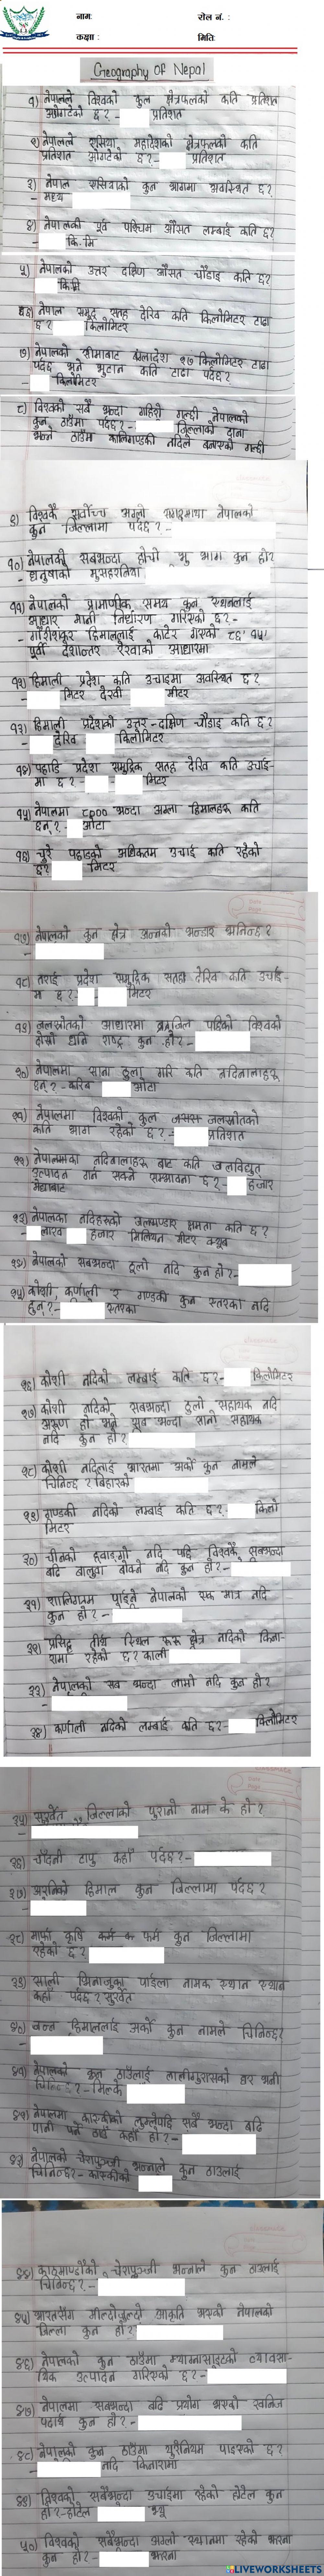 नाम:
रोल नं. :
कक्षा :
मिति:
Geography of Nepal
१) नेपालले विश्वको कुल क्षेत्रफलको कति प्रतिशत
ओगटेको छ? - प्रतिशत
२) नेपालले एसिया महादेशको क्षेत्रफलको कति
प्रतिशत ओगटेको छ? - प्रतिशत
३) नेपाल एसियाको कुन भागमा अवस्थित छ?
- मध्य
४) नेपालको पूर्व पश्चिम औसत लम्बाई कति छ?
- कि.मि
५) नेपालको उत्तर दक्षिण औसत चौडाइ कति छ?
कि.मी
६) नेपाल समुद्र सतह देखि कति किलोमिटर टाढा
छ? किलोमिटर
७) नेपालको सीमाबाट बंगलादेश २७ किलोमिटर टाढा
पर्दछ भने भुटान कति टाढा पर्दछ?
- किलोमिटर
८) विश्वको सबै भन्दा गहिरो गल्छी नेपालको
कुन ठाउँमा पर्दछ? - जिल्लाको दाना
भन्ने ठाउँमा कालिगण्डकी नदिले बनाएको गल्छी
९) विश्वकै सर्वोच्च अग्लो सगरमाथा नेपालको
कुन जिल्लामा पर्दछ? -
१०) नेपालको सबभन्दा होचो भू भाग कुन हो?
- धनुषाको मुसहरनिया
११) नेपालको प्रामाणीक समय कुन स्थानलाई
आधार मानी निर्धारण गरिएको छ? -
- गौरीशंकर हिमाललाई काटेर गएको ८६° १५'
पूर्वी देशान्तर रेखाको आधारमा
१२) हिमाली प्रदेश कति उचाइमा अवस्थित छ?
मिटर देखी मिटर
१३) हिमाली प्रदेशको उत्तर-दक्षिण चौडाइ कति छ?
- देखि किलोमिटर
१४) पहाडि प्रदेश समुद्रिक सतह देखि कति उचाई-
मा छ? - - मिटर
१५) नेपालमा ८००० भन्दा अग्ला हिमालहरु कति
छन्? - ओटा
१६) चुरे पहाडको अधिकतम उचाई कति रहेको
छ? मिटर
१७) नेपालको कुन क्षेत्र अन्नको भन्डार भनिन्छ?
-
१८) तराई प्रदेश समुद्रिक सतह देखि कति उचाई-
मा छ? - - मिटर
१९) जलस्रोतको आधारमा ब्राजिल पछिको विश्वको
दोस्रो धनि राष्ट्र कुन हो? -
२०) नेपालमा साना ठुला गरि कति नदिनालाहरु
छन्? - करिब ओटा
२१) नेपालमा विश्वको कुल जलस्रोतको
कति भाग रहेको छ? - प्रतिशत
२२) नेपालका नदिनालाहरु बाट कति जलविद्युत
उत्पादन गर्न सक्ने सम्भावना छ? - हजार
मेघावाट
२३) नेपालका नदिहरुको जलभण्डार क्षमता कति छ?
- लाख हजार मिलियन मीटर क्युब
२४) नेपालको सबभन्दा ठूलो नदि कुन हो? -
२५) कोशी, कर्णाली र गण्डकी कुन स्तरका नदि
हुन्? - स्तरका
२६) कोशी नदिको लम्बाई कति छ? - किलोमिटर
२७) कोशी नदिको सबभन्दा ठुलो सहायक नदि
अरुण हो भने सब भन्दा सानो सहायक
नदि कुन हो?
२८) कोशी नदिलाई भारतमा अर्को कुन नामले
चिनिन्छ? बिहारको
२९) गण्डकी नदिको लम्बाई कति छ? - किलो
मिटर
३०) चीनको ह्वाङ्गो नदि पछि विश्वकै सबभन्दा
बढि बालुवा बोक्ने नदि कुन हो? -
३१) शालिग्राम पाईने नेपालको एक मात्र नदि
कुन हो? -
३२) प्रसिद्ध तीर्थ स्थल रुरु क्षेत्र नदिको किना-
रामा रहेको छ? काली
३३) नेपालको सब भन्दा लामो नदि कुन हो?
-
३४) कर्णाली नदिको लम्बाई कति छ? - किलोमिटर
३५) सुर्खेत जिल्लाको पुरानो नाम के हो?
-
३६) चाँदनी टापु कहाँ पर्दछ? -
३७) अरनिको हिमाल कुन जिल्लामा पर्दछ?
-
३८) मार्फा कृषि फर्म कुन जिल्लामा
रहेको छ?
३९) साली भिनाजुका पाईला नामक स्थान
कहाँ पर्दछ? सुर्खेत
४०) हिमाललाई अर्को कुन नामले चिनिन्छ?
-
४१) नेपालको कुन ठाउँलाई लालीगुराँसको घर भनी
चिनिन्छ? - मिल्के
४२) नेपालमा कास्कीको लुम्लेपछि सबै भन्दा बढि
पानी पर्ने ठाउँ कहाँ हो? -
४३) नेपालको चेरापुञ्जी भन्नाले कुन ठाउलाई
चिनिन्छ? - कास्कीको
४४) काठमाण्डौको चेरापुञ्जी भन्नाले कुन ठाउलाई
चिनिन्छ? -
४५) भारतसँग मिल्दोजुल्दो आकृति भएको नेपालको
जिल्ला कुन हो?
४६) नेपालको कुन ठाउँमा म्याग्नासाइटको व्यावसा-
यिक उत्पादन गरिएको छ? -
४७) नेपालमा सबभन्दा बढि प्रयोग भएको खनिज
पदार्थ कुन हो? -
४८) नेपालको कुन ठाउँमा युरेनियम पाइएको छ?
- नदि किनारामा
४९) विश्वको सबैभन्दा उचाईमा रहेको होटेल कुन
हो? - होटेल भ्यू
५०) विश्वको सबैभन्दा अग्लो स्थानमा रहेको झरना
कुन हो? - झरना
LIVEWORKSHEETS